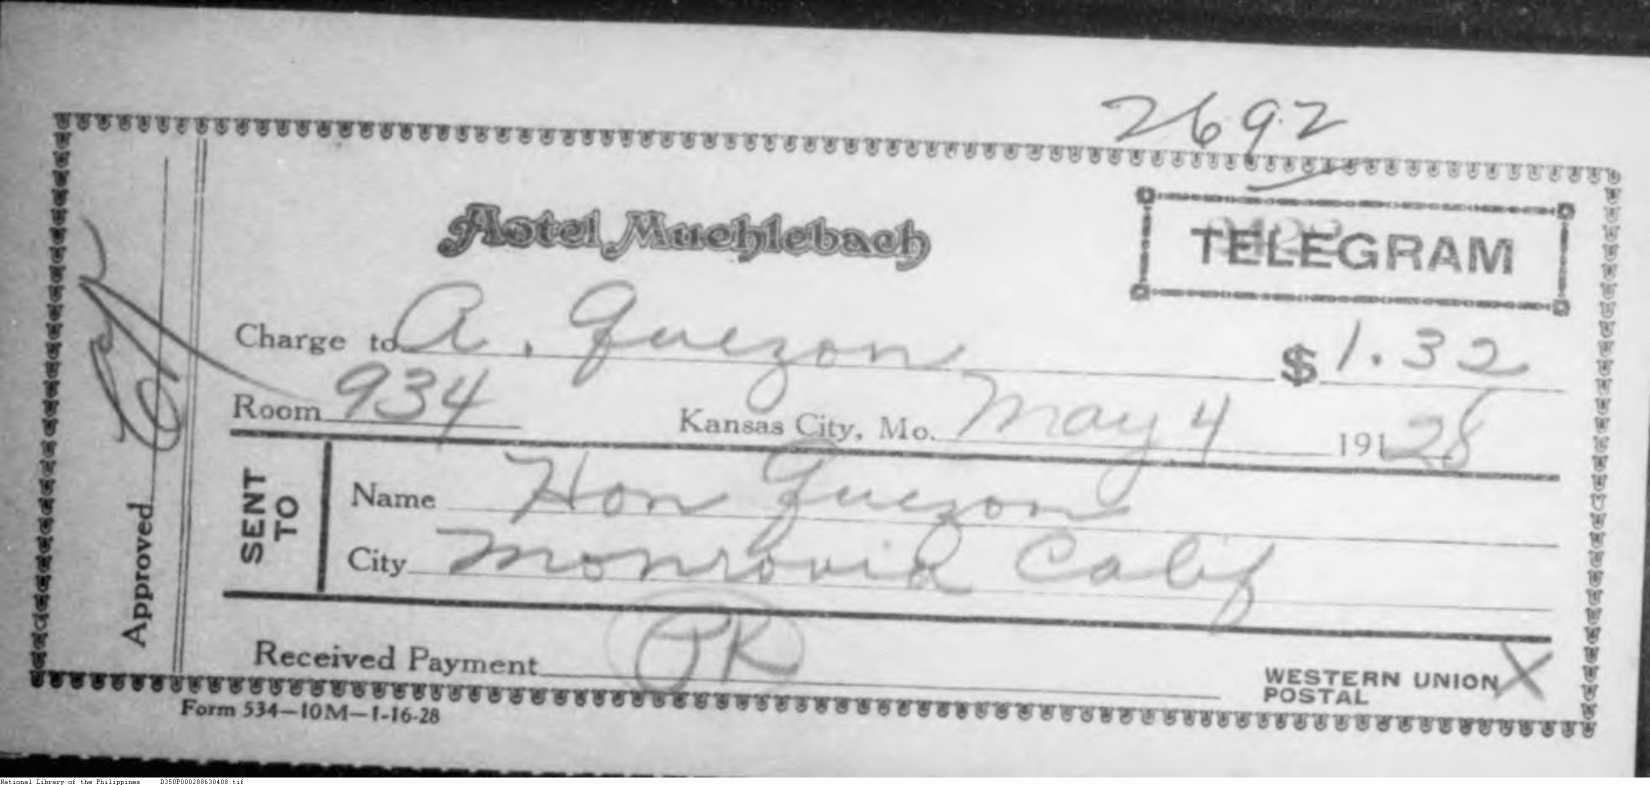 2692
Hotel Muehlebach
TELEGRAM
Charge to A. Quezon $ 1.32
Room 934 Kansas City, Mo. May 4 191 28
SENT TO
Name Hon Quezon
City Monrovia Calif
Approved
Received Payment PK
WESTERN UNION X
POSTAL
Form 534—10M—1-16-28
National Library of the Philippines D350P000288630408.tif